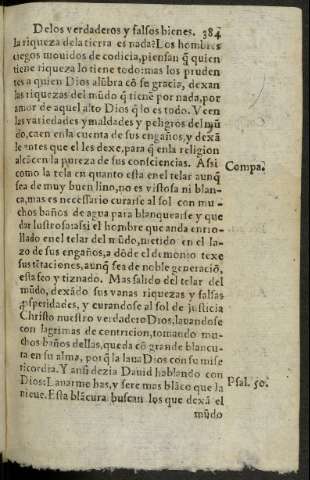 De los verdaderos y falsos bienes. 384
la riqueza dela tierra es nada? Los hombres
ciegos mouidos de codicia, piensan q̃ quien
tiene riqueza lo tiene todo: mas los pruden
tes a quien Dios alũbra cõ se gracia, dexan
las riquezas del mũdo q̃ tienẽ por nada, por
amor de aquel alto Dios q̃ lo es todo. Veen
las variedades y maldades y peligros del mũ
do, caen en la cuenta de sus engaños, y dexã
le antes que el les dexe, para q̃ enla religion
alcãcen la pureza de sus consciencias. Assi
como la tela en quanto esta en el telar aunq̃
sea de muy buen lino, no es vistosa ni blan-
ca, mas es necessario curarse al sol con mu-
chos baños de agua para blanquearse y que
dar lustroso: assi el hombre que anda enrro-
llado en el telar del mũdo, metido en el la-
zo de sus engaños, a dõde el demonio texe
sus tẽtaciones, aunq̃ sea de noble generaciõ,
esta feo y tiznado. Mas salido del telar del
mũdo, dexãdo sus vanas riquezas y falsas
ꝓsperidades, y curandose al sol de justicia
Christo nuestro verdadero Dios, lauandose
con lagrimas de contricion, tomando mu-
chos baños dellas, queda cõ grande blancu-
ra en su alma, porq̃ la laua Dios con su mise
ricordia. Y ansi dezia Dauid hablando con
Dios: Lauarme has, y sere mas blãco que la
nieue. Esta blãcura buscan los que dexã el
mũdo
Compa.
Psal. 50.